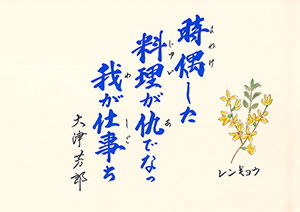 時偶した
料理が仇でなっ
我が仕事ち
大津芳郎
レンギョウ